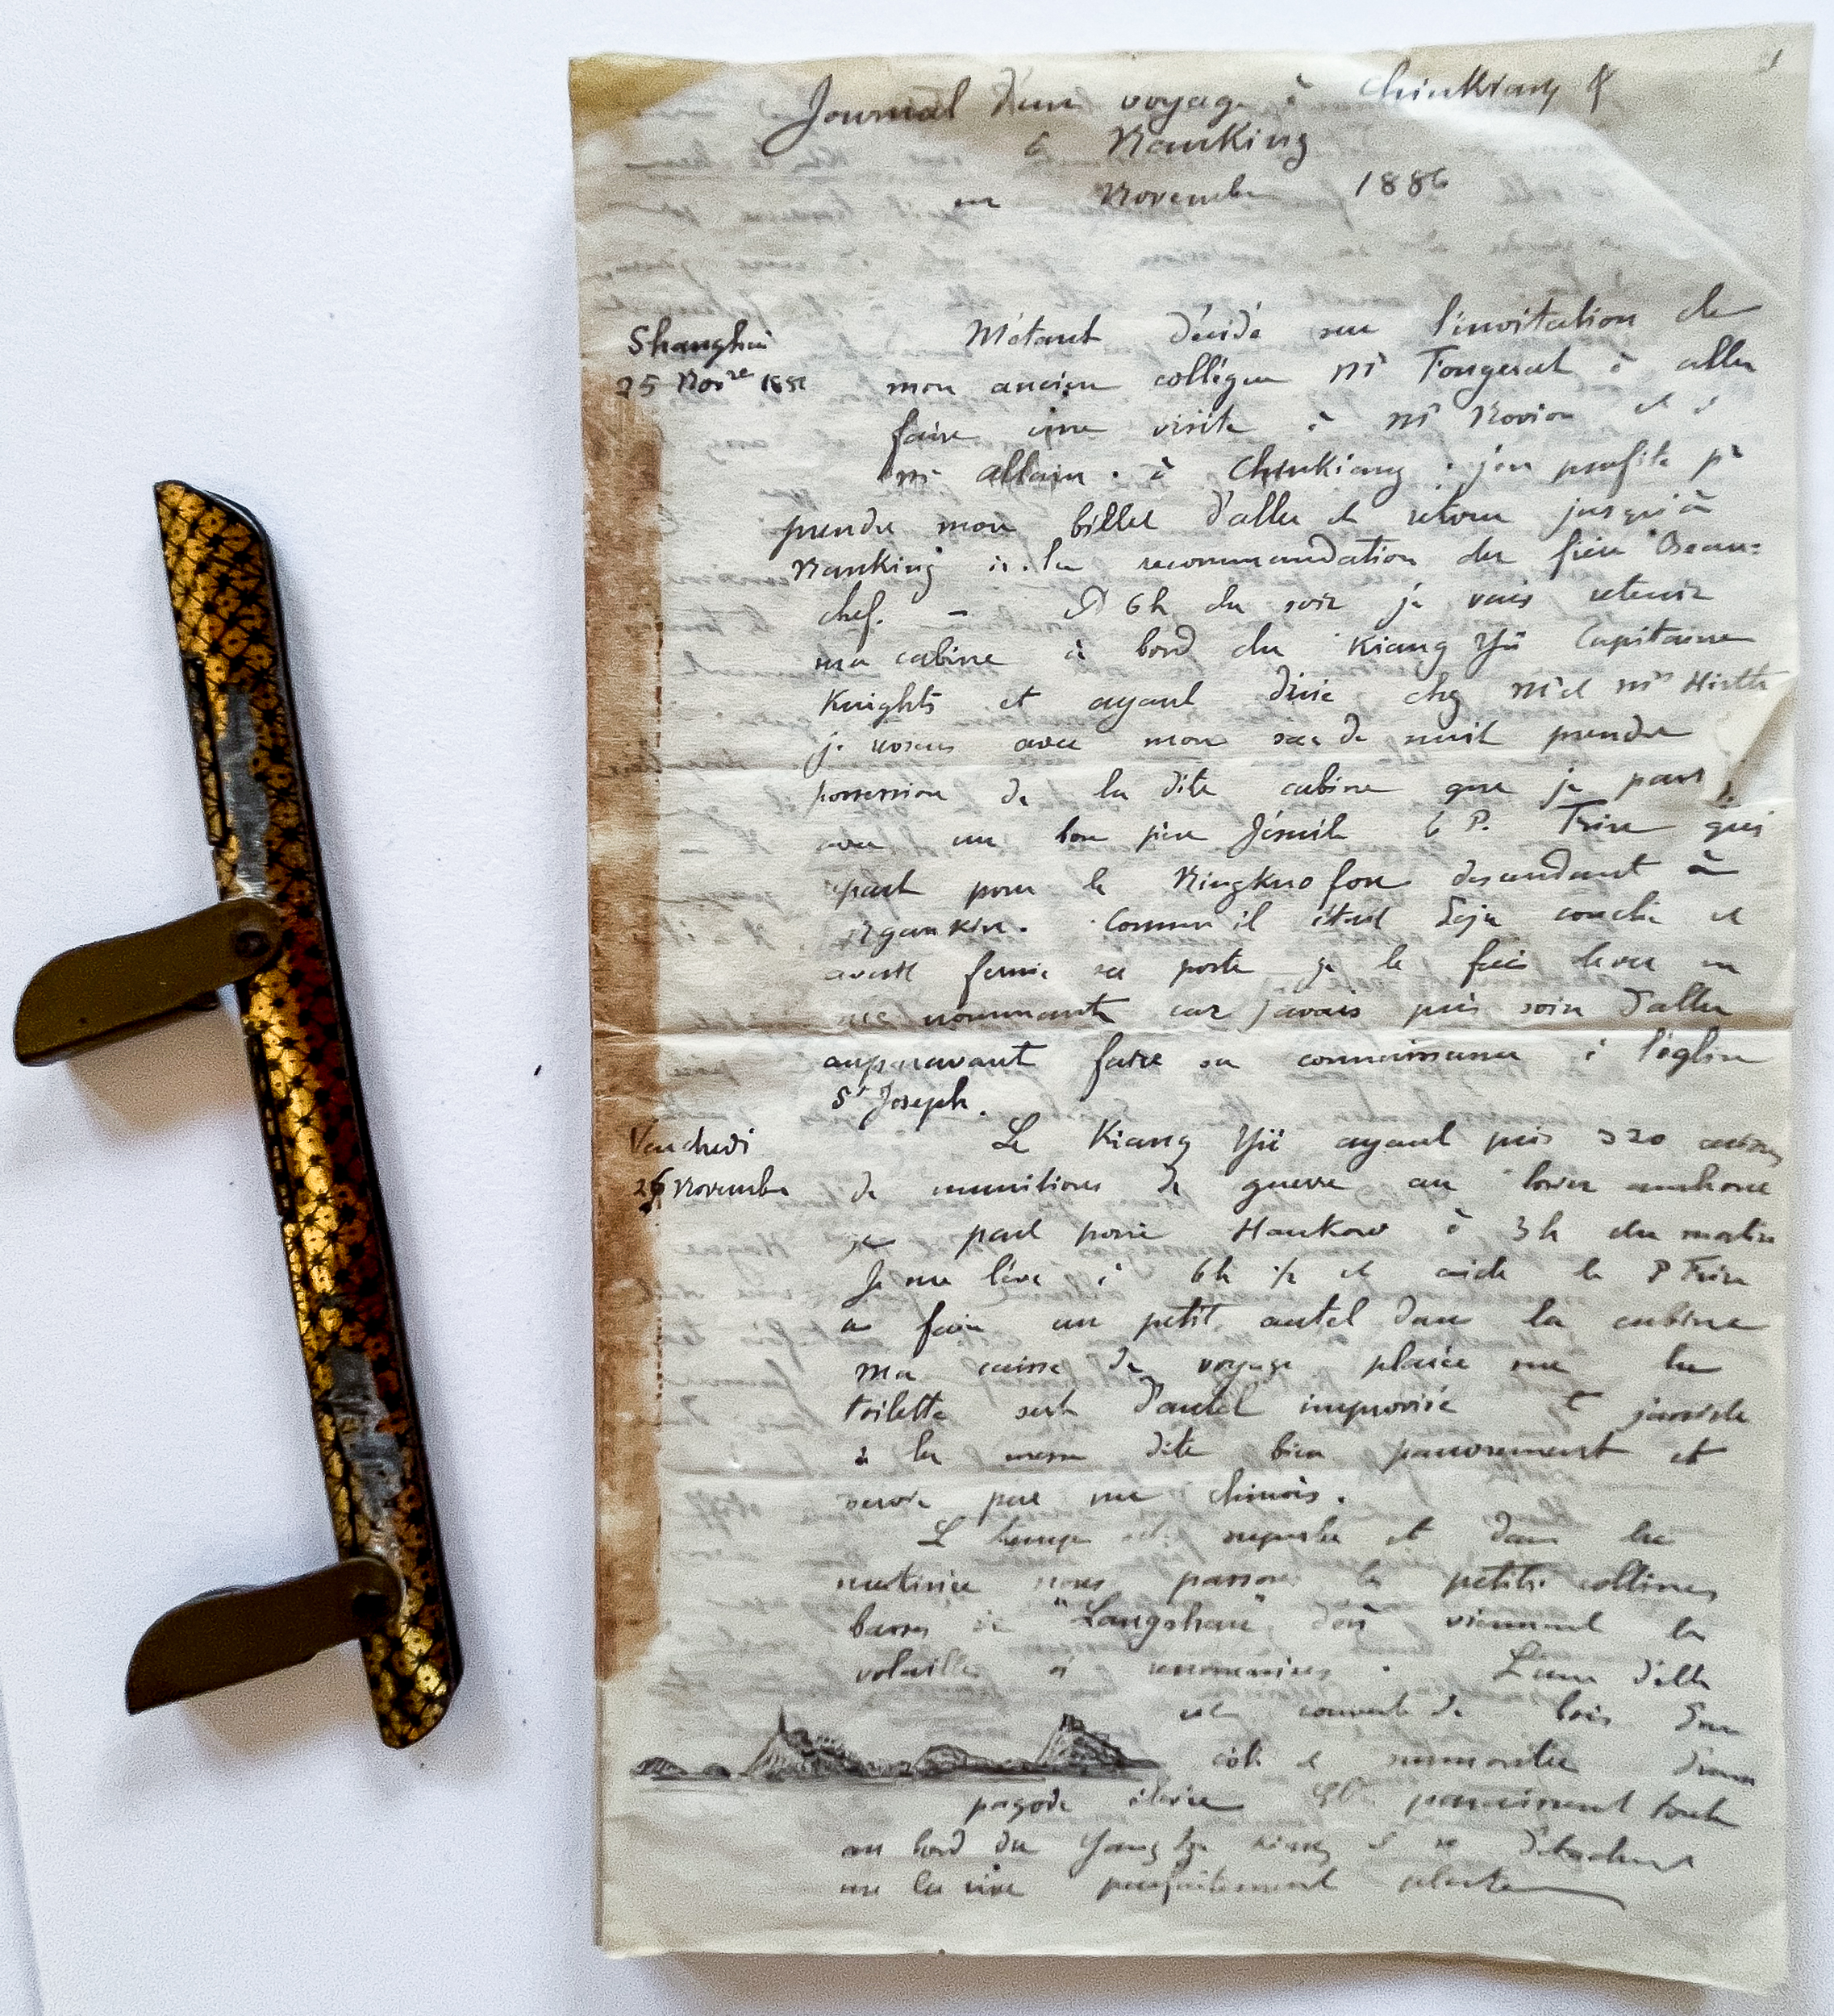 1
Journal d'un voyage à Chinkiang &
à Nanking
en Novembre 1886
Shanghai
25 Nov.re 1886
M'étant décidé sur l'invitation de
mon ancien collègue Mr Fongerat à aller
faire une visite à Mr Novion et à
Mr Allain à Chinkiang j'en profite pr
prendre mon billet d'aller et retour jusqu'à
Nanking à la recommandation du sieur Beau=
chef. — A 6h du soir je vais retenir
ma cabine à bord du Kiang Yü Capitaine
Knights et ayant diné chez Mr et Me Hirth
je reviens avec mon sac de nuit prendre
possession de la dite cabine que je part
avec un bon père Jésuite le P. Frin qui
part pour le Ningkuo fou descendant à
Ngankin. Comme il était déjà couché et
avait fermé sa porte je le fais lever en
me nommant car j'avais pris soin d'aller
auparavant faire sa connaissance à l'église
St Joseph.
Vendredi
26 Novembre
Le Kiang Yü ayant pris 320 caisses
de munitions de guerre au lower anchorage
part pour Hankow à 3h du matin
Je me lève à 6h ½ et aide le P Frin
a faire un petit autel dans la cabine
Ma caisse de voyage placée sur la
toilette sert d'autel improvisé et j'assiste
à la messe dite bien pauvrement et
servie par un chinois.
Le temps est superbe et dans la
matinée nous passons les petites collines
basses de "Langshan" d'où viennent les
volailles si renommées. L'une d'elles
est couverte de bois d'un
côté et surmontée d'une
pagode élevée Elles paraissent toutes
au bord du Yang tze Kiang et se détachent
sur la rive parfaitement plate